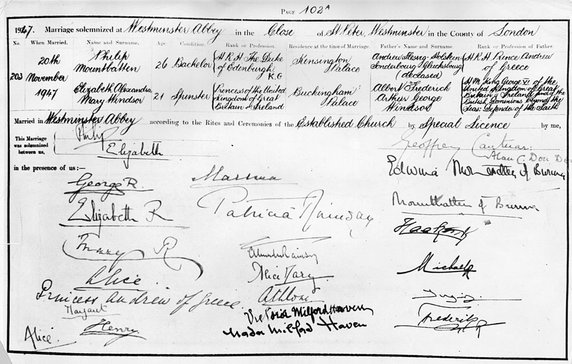 PAGE 102A
1947. Marriage solemnized at Westminster Abbey in the Close of St Peter, Westminster in the County of London
No. When Married. Name and Surname. Age Condition. Rank or Profession. Residence at the time of Marriage. Father's Name and Surname. Rank or Profession of Father.
20th November 1947
Philip Mountbatten
26
Bachelor
H R H The Duke of Edinburgh K G
Kensington Palace
Andrew (deceased)
H R H Prince Andrew of Greece
Elizabeth Alexandra Mary Windsor
21
Spinster
Princess of the United Kingdom of Great Britain & Ireland
Buckingham Palace
Albert Frederick Arthur George Windsor
H M King George VI of the United Kingdom of Great Britain & Ireland and of the British Dominions beyond the Seas Defender of the Faith
Married in Westminster Abbey according to the Rites and Ceremonies of the Established Church by Special Licence by me,
This Marriage was solemnized between us,
Philip
Elizabeth
Geoffrey Cantuar:
Alan C Don
in the presence of us:
George R.
Elizabeth R
Mary R
Alice
Princess Andrew of Greece
Margaret
Henry
Alice.
Marina
Patricia Ramsay
Alice Mary
Athlone
Victoria Milford Haven
Nada Milford Haven
Edwina Mountbatten of Burma
Mountbatten of Burma
Haakon
Michael
Frederik R